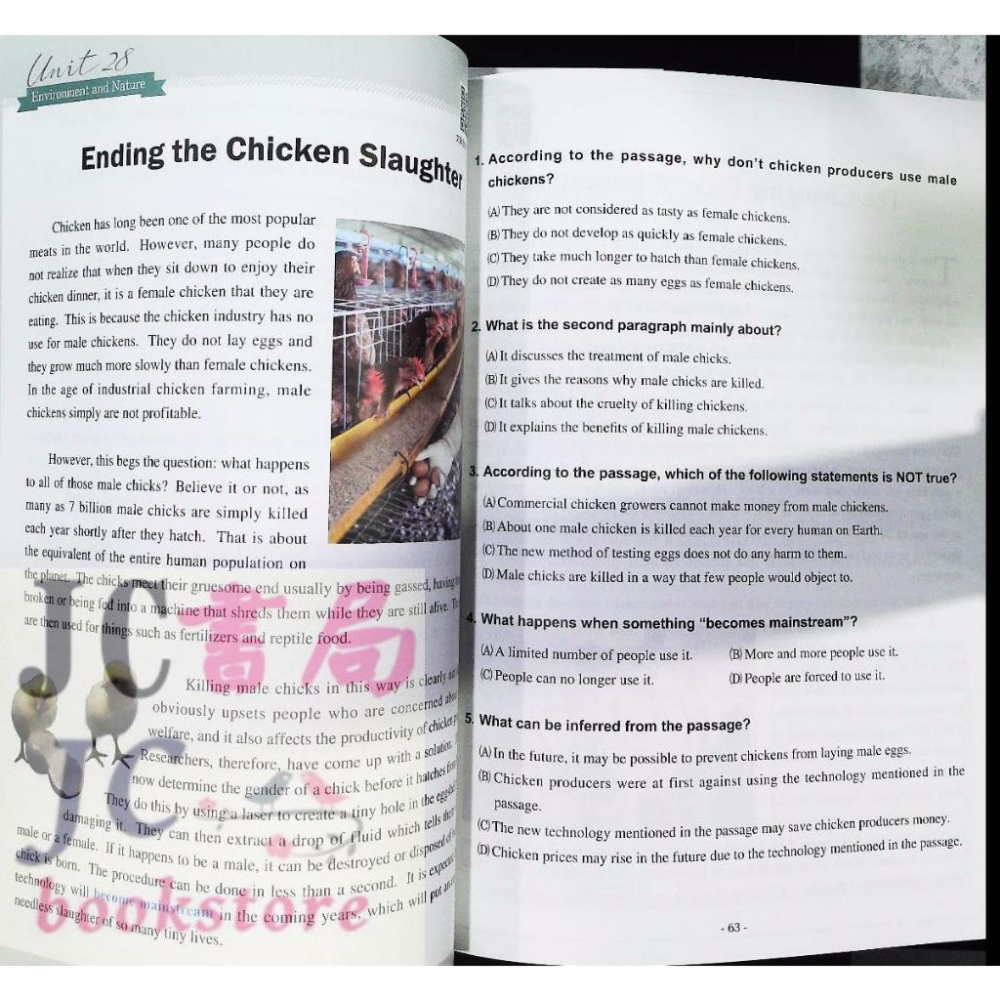 Unit 28
Environment and Nature
Ending the Chicken Slaughter
Chicken has long been one of the most popular
meats in the world. However, many people do
not realize that when they sit down to enjoy their
chicken dinner, it is a female chicken that they are
eating. This is because the chicken industry has no
use for male chickens. They do not lay eggs and
they grow much more slowly than female chickens.
In the age of industrial chicken farming, male
chickens simply are not profitable.
However, this begs the question: what happens
to all of those male chicks? Believe it or not, as
many as 7 billion male chicks are simply killed
each year shortly after they hatch. That is about
the equivalent of the entire human population on
the planet. The chicks meet their gruesome end usually by being gassed, having
broken or being fed into a machine that shreds them while they are still alive.
are then used for things such as fertilizers and reptile food.
Killing male chicks in this way is clearly
obviously upsets people who are concerned
welfare, and it also affects the productivity of chicken
Researchers, therefore, have come up with a solution.
now determine the gender of a chick before it hatches
They do this by using a laser to create a tiny hole in the
damaging it. They can then extract a drop of fluid which tells
male or a female. If it happens to be a male, it can be destroyed or disposed of
chick is born. The procedure can be done in less than a second. It is
technology will become mainstream in the coming years, which will put an
needless slaughter of so many tiny lives.
JC書局
JC
bookstore
1. According to the passage, why don't chicken producers use male
chickens?
(A) They are not considered as tasty as female chickens.
(B) They do not develop as quickly as female chickens.
(C) They take much longer to hatch than female chickens.
(D) They do not create as many eggs as female chickens.
2. What is the second paragraph mainly about?
(A) It discusses the treatment of male chicks.
(B) It gives the reasons why male chicks are killed.
(C) It talks about the cruelty of killing chickens.
(D) It explains the benefits of killing male chickens.
3. According to the passage, which of the following statements is NOT true?
(A) Commercial chicken growers cannot make money from male chickens.
(B) About one male chicken is killed each year for every human on Earth.
(C) The new method of testing eggs does not do any harm to them.
(D) Male chicks are killed in a way that few people would object to.
4. What happens when something "becomes mainstream"?
(A) A limited number of people use it. (B) More and more people use it.
(C) People can no longer use it. (D) People are forced to use it.
5. What can be inferred from the passage?
(A) In the future, it may be possible to prevent chickens from laying male eggs.
(B) Chicken producers were at first against using the technology mentioned in the
passage.
(C) The new technology mentioned in the passage may save chicken producers money.
(D) Chicken prices may rise in the future due to the technology mentioned in the passage.
- 63 -